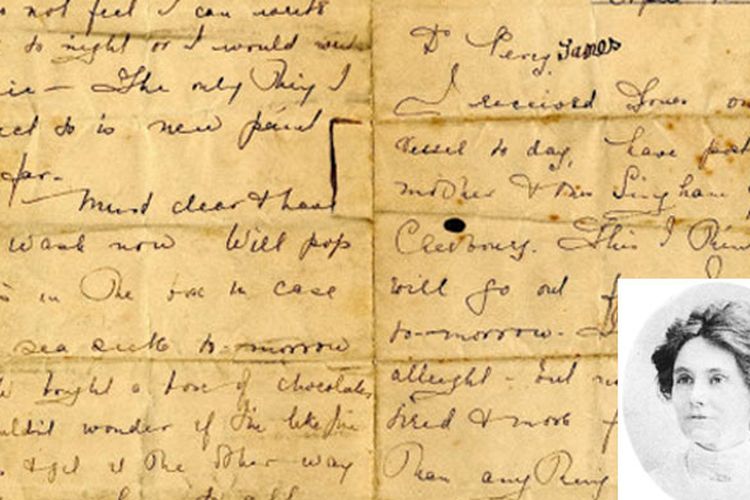 not feel I can write
to night or I would
The only thing I
to is new paint
far-
Must clear & have
wash now Will pop
in the box in case
sea sick to-morrow
bright a box of chocolates
wonder if I'm like
& get it the other way
Dr Percy James
I received Yours
vessel to day, have
mother & Mrs Singham
Cherbourg. This I
will go out
to-morrow-
allright - but
tired & more
than anything